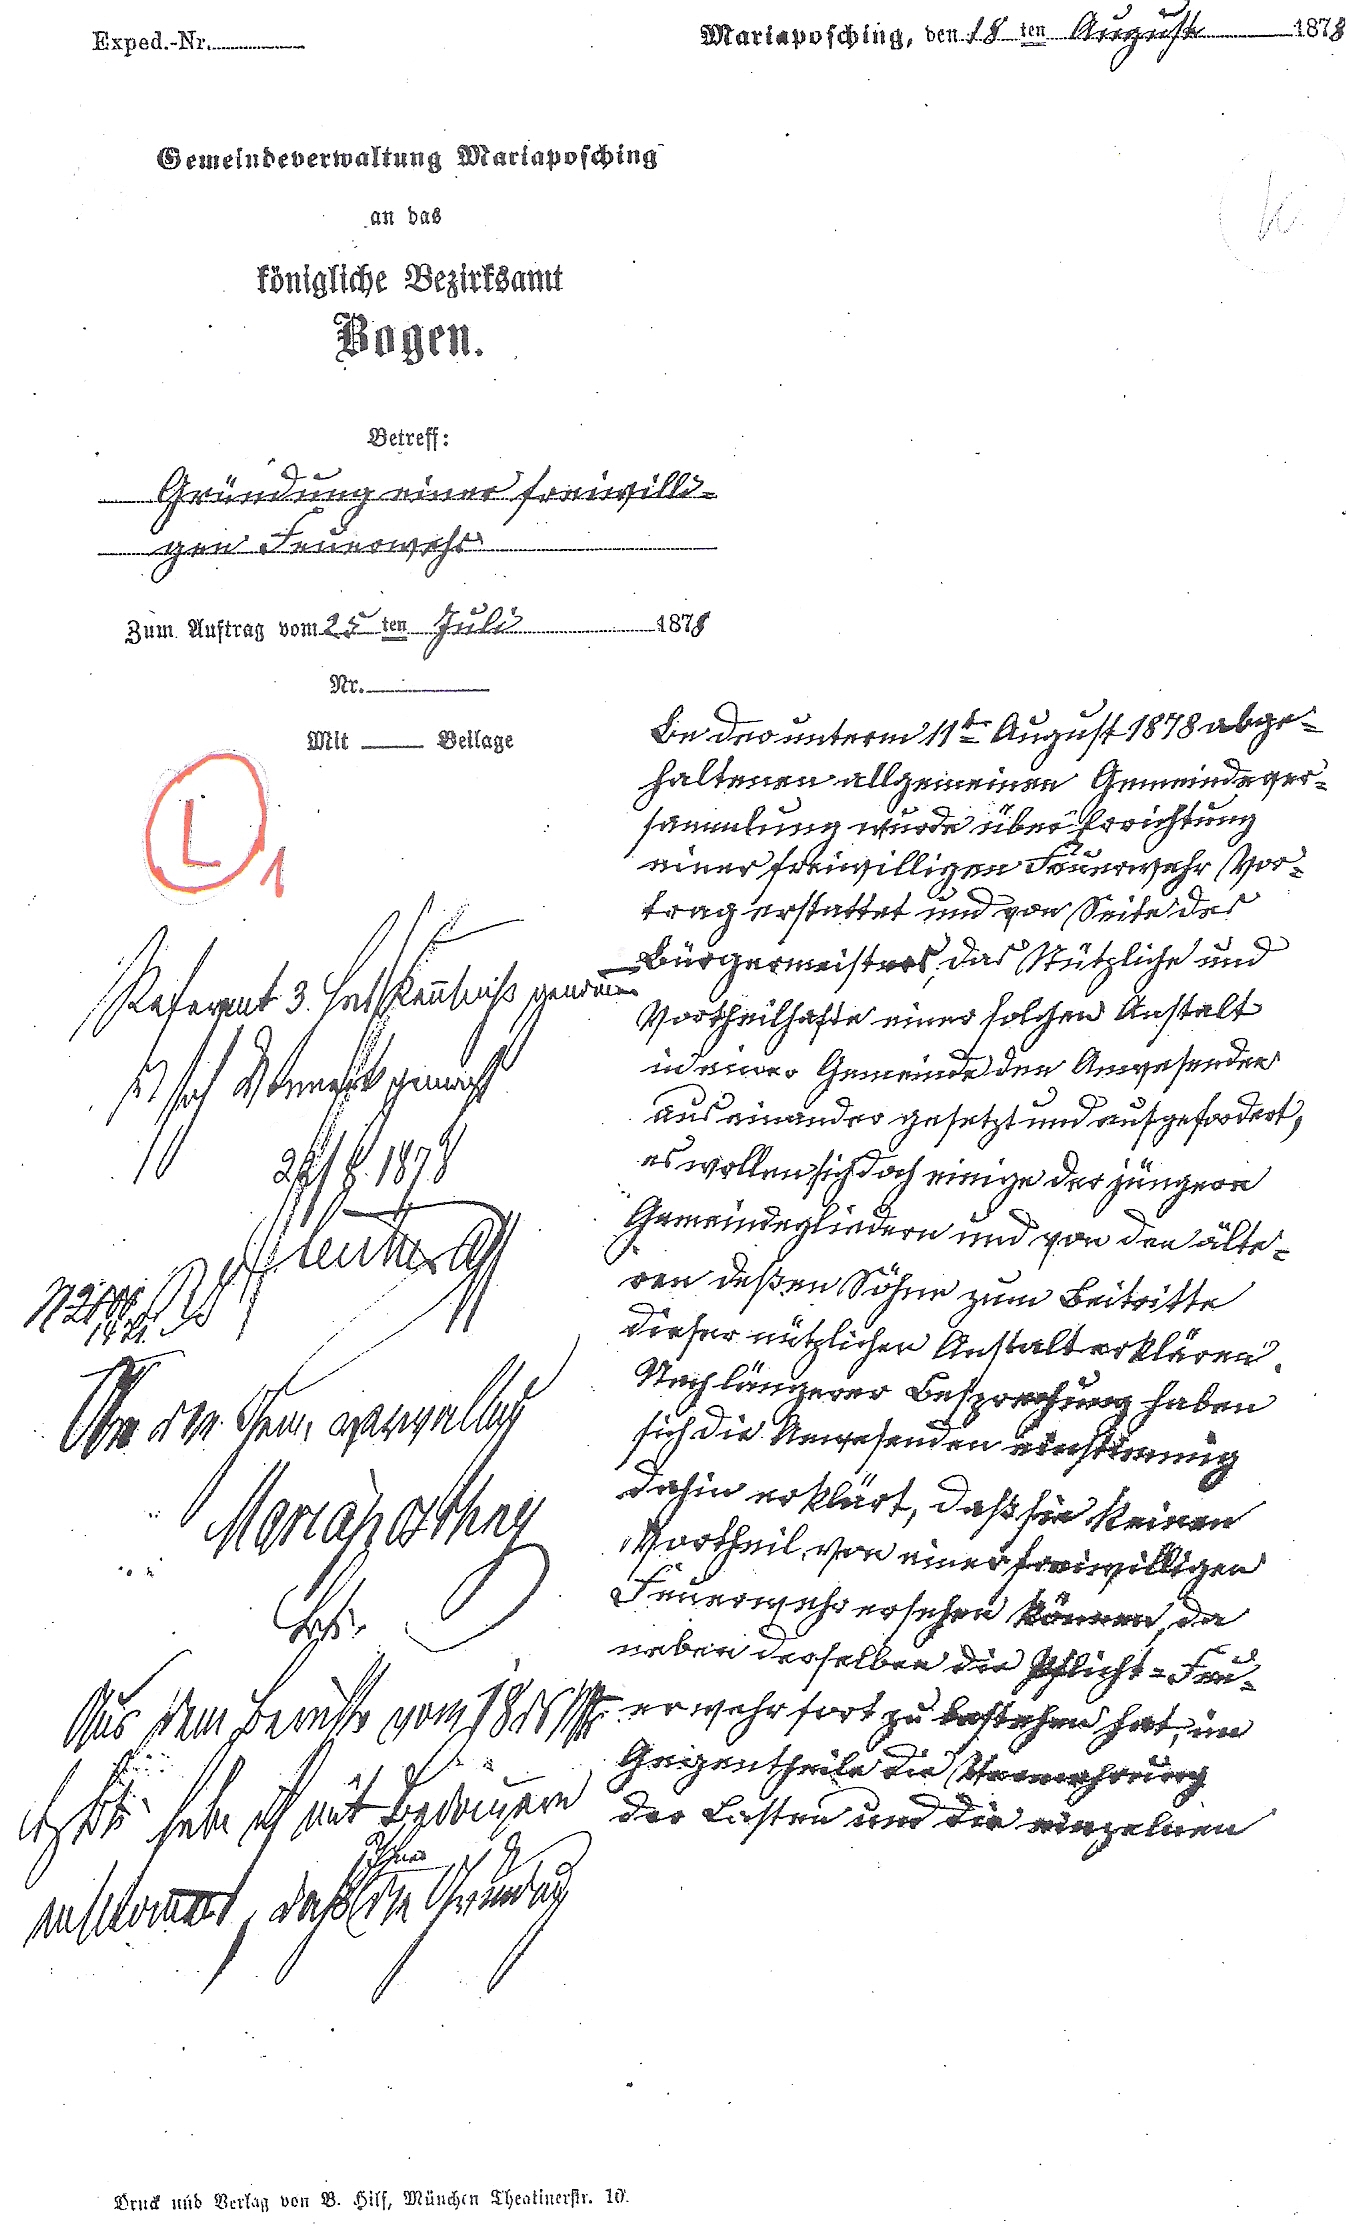 Exped.-Nr.
Mariaposching, den 18 ten August 1878
Gemeindeverwaltung Mariaposching
an das
königliche Bezirksamt
Bogen.
Betreff:
Gründung einer freiwilli-
gen Feuerwehr
Zum Auftrag vom 25 ten Juli 1878
Nr.
Mit Beilage
L 1
Referent 3. hat Kenntniß genommen
sich Vormerk gemacht
22/8. 1878
An die Gem. verwaltung
Mariaposching
Aus dem Berichte vom 18 ds Mts
habe ich mit Bedauern
entnommen, daß die Gründung
Bei der unterm 11t August 1878 abge-
haltenen allgemeinen Gemeindever-
sammlung wurde über Errichtung
einer freiwilligen Feuerwehr Vor-
trag erstattet und von Seite des
Bürgermeisters, das Nützliche und
Vortheilhafte einer solchen Anstalt
in einer Gemeinde den Anwesenden
aus einander gesetzt und aufgefordert,
es wollen sich doch einige der jüngern
Gemeindegliedern und von den älte-
ren deßen Söhne zum Beitritte
dieser nützlichen Anstalt erklären.
Nach längerer Besprechung haben
sich die Anwesenden einstimmig
dahin erklärt, daß sie keinen
Vortheil von einer freiwilligen
Feuerwehr ersehen können, da
neben derselben die Pflicht-Feu-
erwehr fort zu bestehen hat, im
Gegentheile die Vermehrung
der Lasten und die einzelnen
Druck und Verlag von B. Hilf, München Theatinerstr. 10.